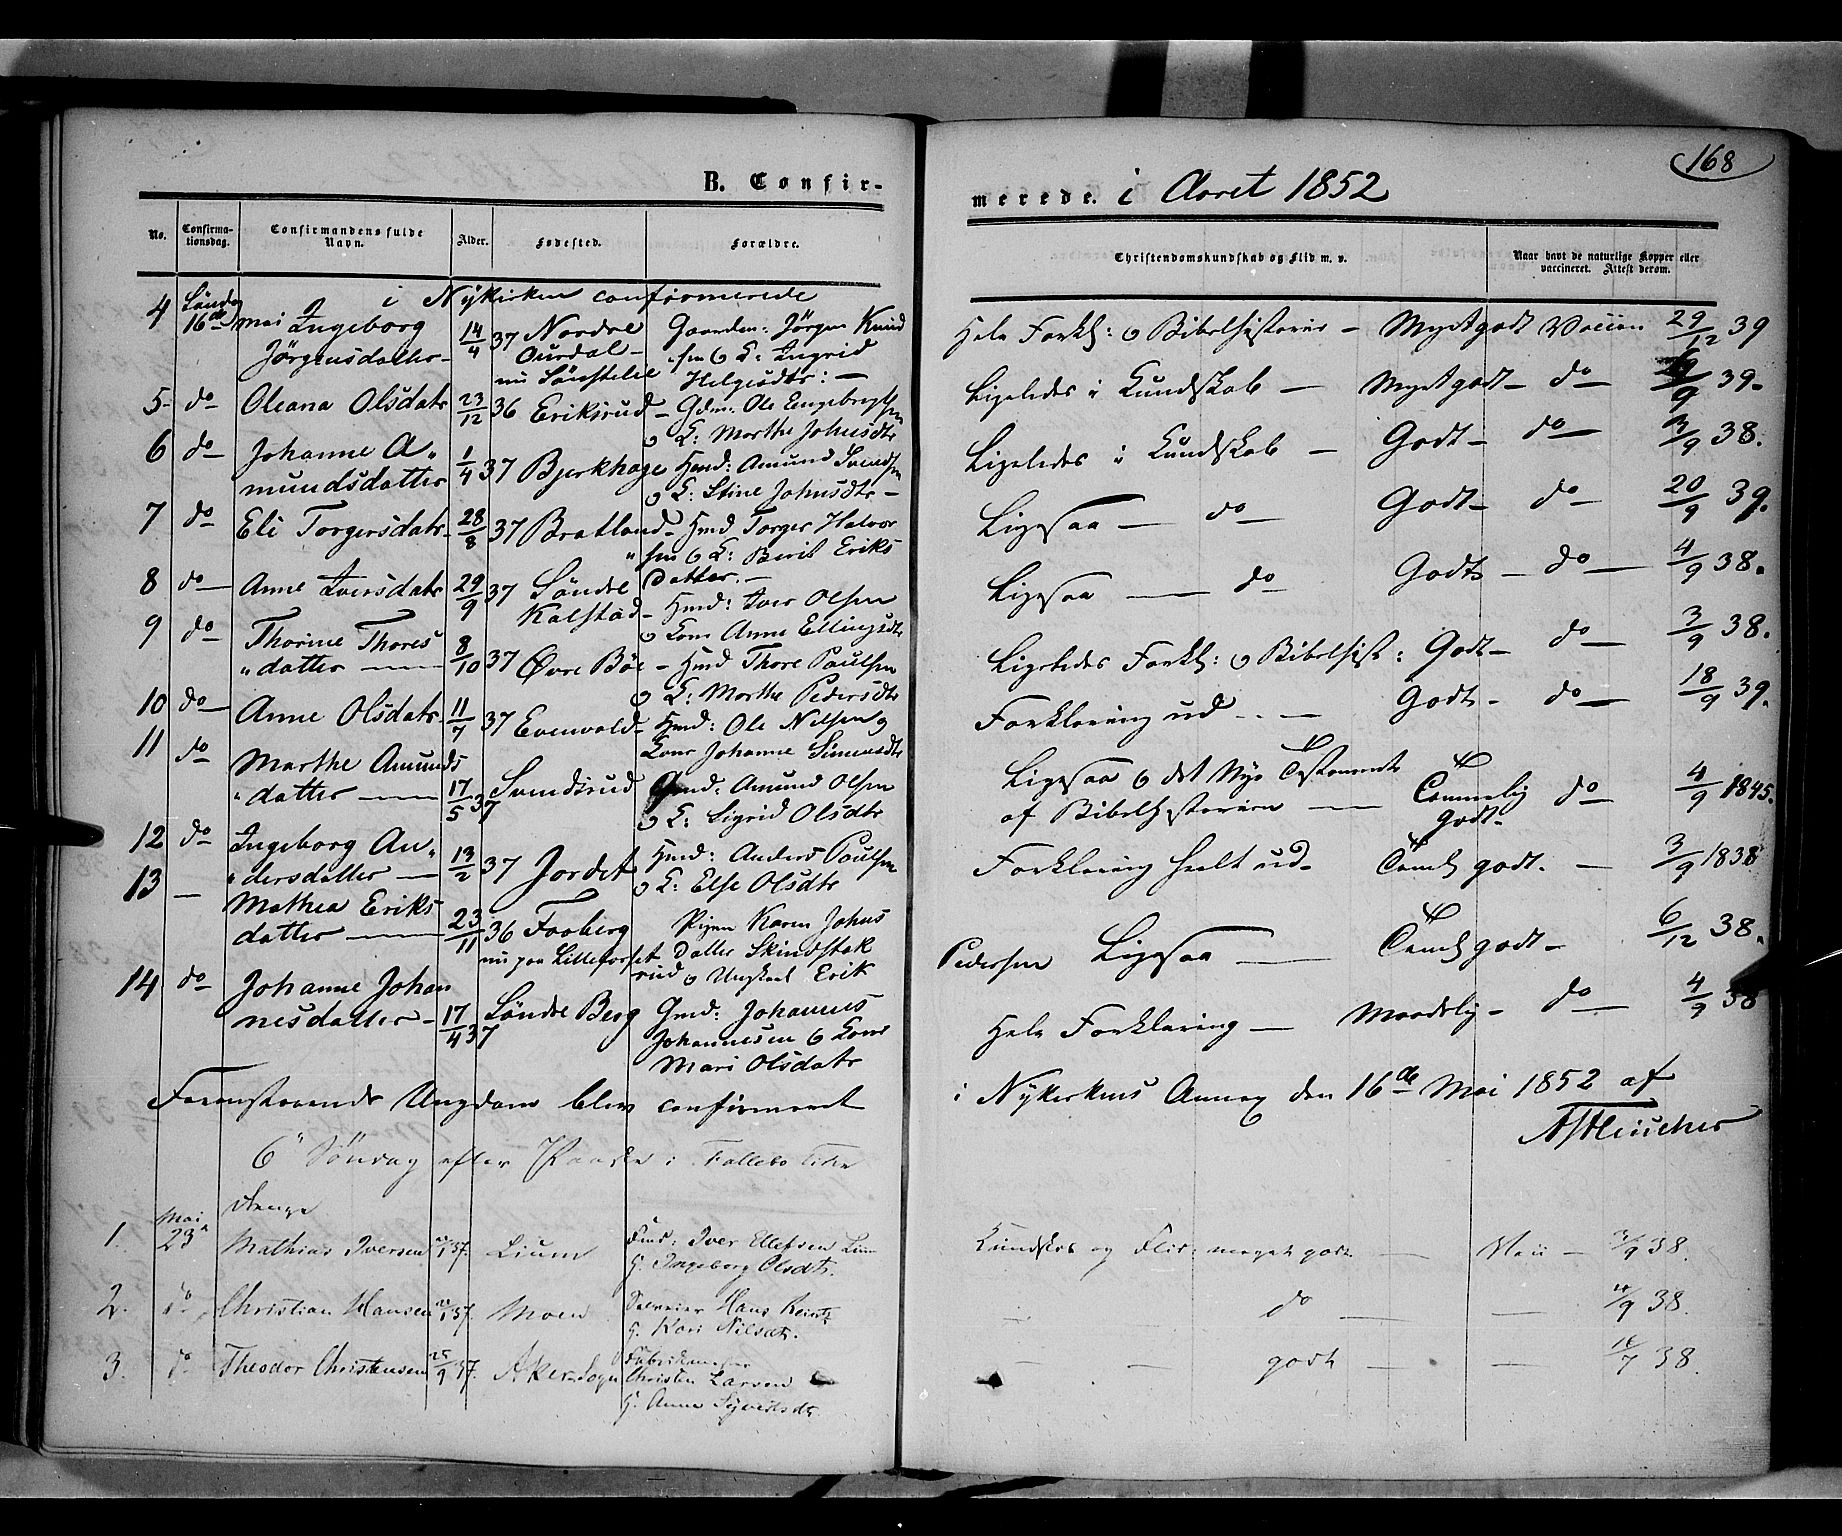 168
B. Confir-
merede. i Aaret 1852
No.
Confirma-
tionsdag.
Confirmandens fulde
Navn.
Alder.
Fødested.
Forældre.
Christendomskundskab og Flid m. v.
Naar havt de naturlige Kopper eller
vaccineret. Attest derom.
i Nykirken confirmerede
4 Søndag 16de mai Ingeborg 14/4 37 Nordre Gaarden: Jörgen Knud
Jörgensdatter Ourdal sen o K: Ingrid
nu Helgesdtr: —
Hele Forkl: o Bibelhistorie — Meget godt Vaccin 29/12 39
5 do Oleana Olsdatr 23/12 36 Eriksrud — Gdm: Ole Engebregtsen
o K: Marthe Johnsdtr
Ligeledes i Kundskab — Meget godt — do — /9 39
6 do Johanne A„ 1/4 37 Bjerkhage Hmd: Amund Svendsen
mundsdatter o K: Stine Johnsdtr —
Ligeledes i Kundskab Godt — do — 3/9 38.
7 do Eli Torgersdatr 28/8 37 Bratland — Hmd Torger Halvor
„sen o K: Berit Eriks
datter. —
Ligesaa — do Godt — do — 20/9 39.
8 do — Anne Iversdatr 29/9 37 Söndre
Kalstad — Hmd: Iver Olsen
o Kone Anne Ellingsdtr
Ligesaa — do Godt — do — 4/9 38.
9 do Thorine Thores 8/10 37 Øvre Böe — Hmd Thore Paulsen
„datter — o K: Marthe Pedersdtr
Ligeledes Forkl: o Bibelhist: Godt — do — 3/9 38.
10 do — Anne Olsdatr 11/7 37 Evenvold — Hmd: Ole Nilsen o
Kone Johanne Simensdtr
Forklaring ud — Godt — do — 18/9 39.
11 do Marthe Amunds
„datter — 17/5 37 Svendsrud Gmd: Amund Olsen
o K: Sigrid Olsdtr
Ligesaa o det Nye Testamente
af Bibelhistorien — Temmelig
Godt — do — 4/9 1845.
12 do Ingeborg An„ 13/2 37 Jordet Hmd: Anders Paulsen
„dersdatter — o K: Else Olsdtr
Forklaring heelt ud — Teml godt. — 3/9 1838
13 — Mathea Eriks
datter — 23/11 36 Faaberg Pigen Karen Johns
nu paa Lilleforset Datter Skindstak
rud o Ungkarl Erik
Pedersen Ligesaa — Teml godt — 6/12 38.
14 do Johanne Johan
nesdatter — 17/4 37 Söndre Berg Gmd: Johannes
Johannesen o Kone
Mari Olsdatr
Hele Forklaring — Maadelig — do — 4/9 38
Foranstaaende Ungdom blev confirmeret
i Nykirkens Annex den 16de Mai 1852 af
6te Söndag efter Paaske i
Drenge
1. Mai 23de Mathias Iversen 37. Lium Hmd: Iver Ellefsen Lium
H. Ingeborg Olsdtr.
Kundskab og Flid: meget godt — Vacc — /9 38.
2. do Christian Hansen 37. Moen Hans
H. Kari Nilsdtr.
— do — /9 38.
3. do Theodor Christensen 25/9 37. Akers Sogn
Christen Larsen
H. Anne
— — godt — — /7 38.